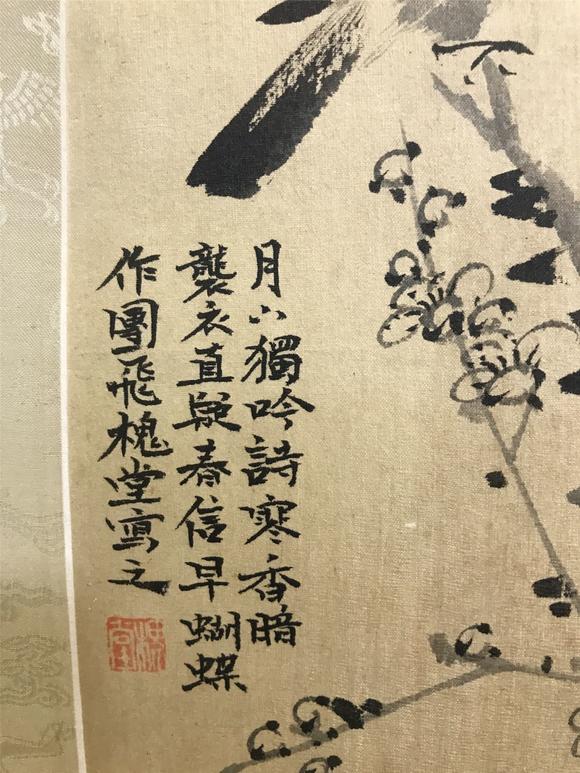 月下獨吟詩寒香暗
襲衣直疑春信早蝴蝶
作團飛槐堂寫之
槐堂